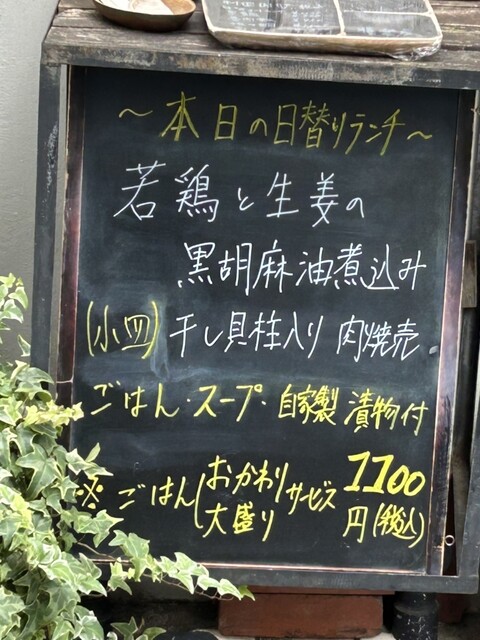 ～本日の日替りランチ～
若鶏と生姜の
黒胡麻油煮込み
(小皿) 干し貝柱入り 肉焼売
ごはん・スープ・自家製 漬物付
※ ごはん おかわり 大盛り サービス 1100円(税込)